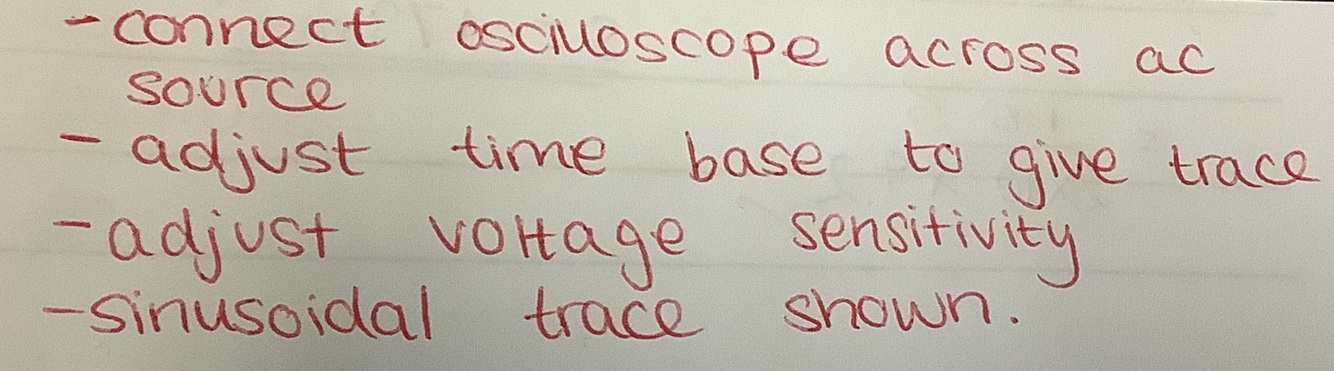 - connect oscilloscope across ac
source
- adjust time base to give trace
- adjust voltage sensitivity
- sinusoidal trace shown.